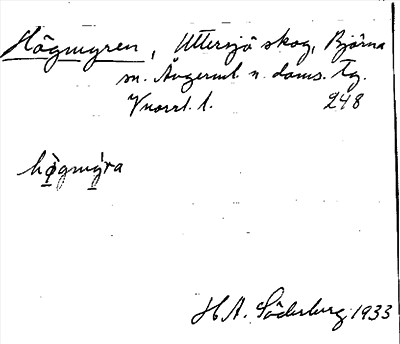 Högmyren, Uttersjö skog, Björna
sn. Ångerml. n. doms. Tg.
Vnorrl. l. 248
hø̀gmy̆ra
H. A. Söderberg 1933